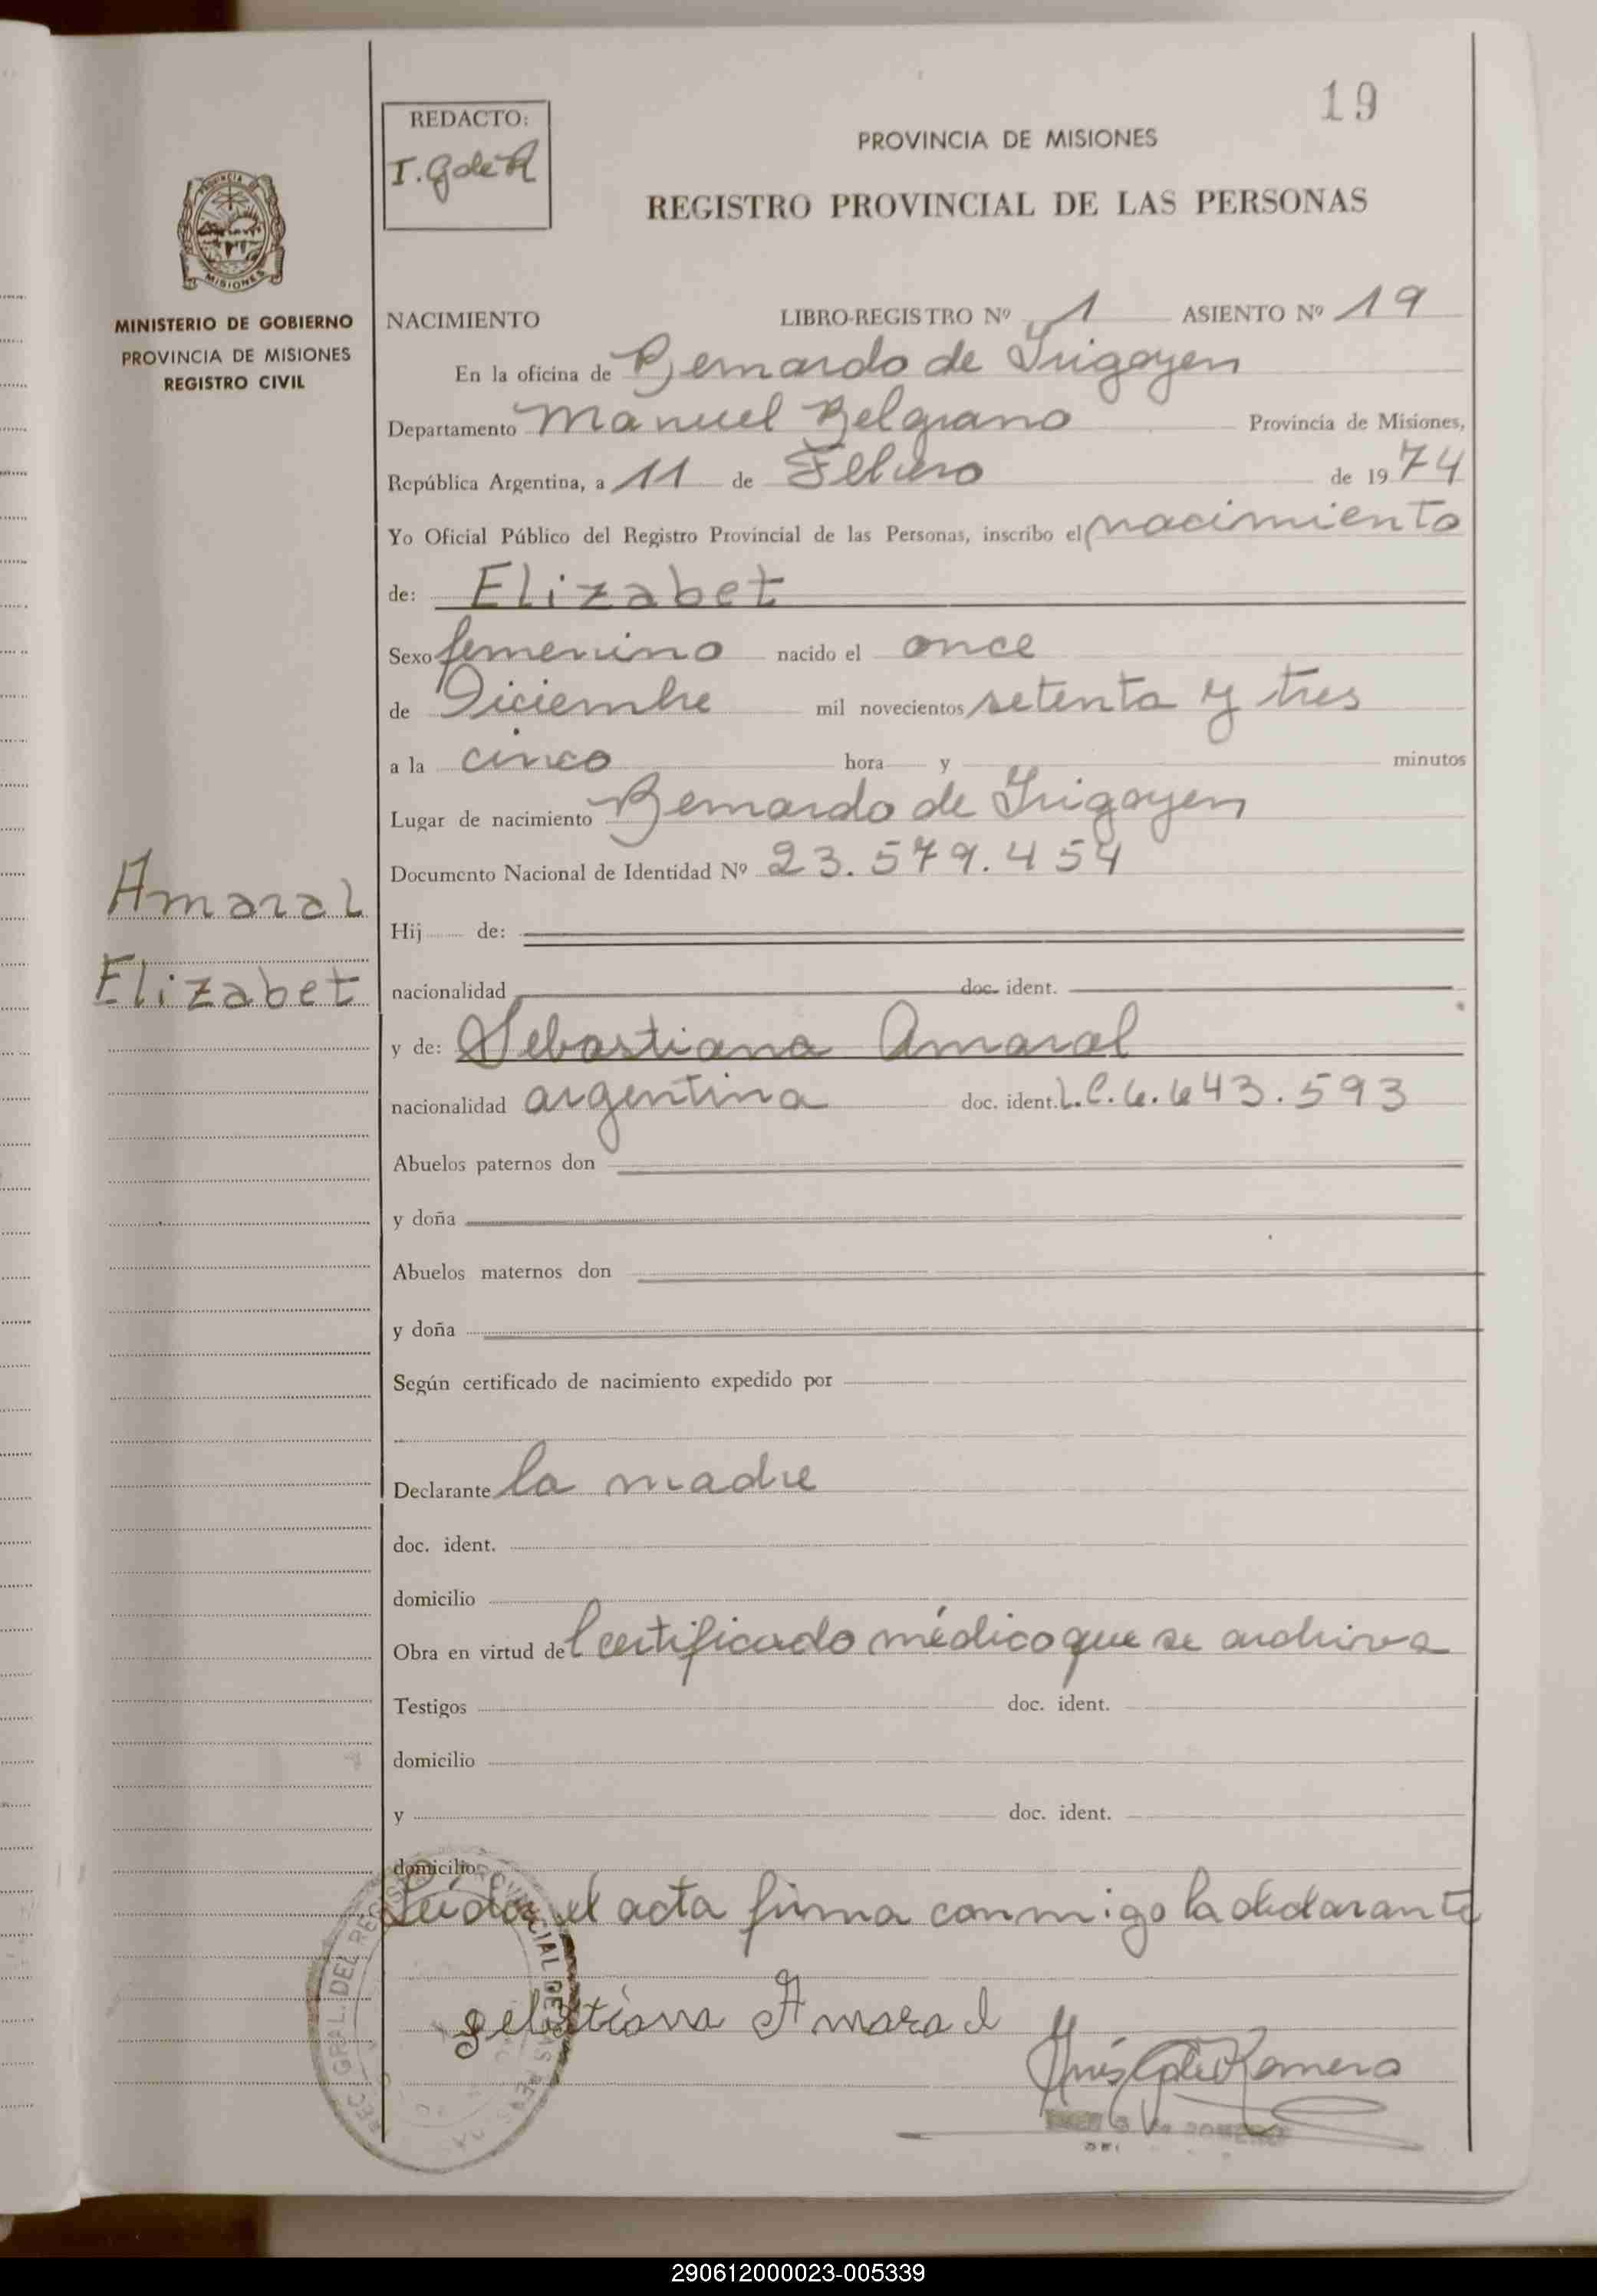 19
REDACTO:
I. G de R
PROVINCIA DE MISIONES
REGISTRO PROVINCIAL DE LAS PERSONAS
PROVINCIA DE
MISIONES
MINISTERIO DE GOBIERNO
PROVINCIA DE MISIONES
REGISTRO CIVIL
NACIMIENTO LIBRO-REGISTRO Nº 1 ASIENTO Nº 19
En la oficina de Bernardo de Irigoyen
Departamento Manuel Belgrano Provincia de Misiones,
República Argentina, a 11 de Febrero de 1974
Yo Oficial Público del Registro Provincial de las Personas, inscribo el nacimiento
de: Elizabet
Sexo femenino nacido el once
de Diciembre mil novecientos setenta y tres
a la cinco hora y minutos
Lugar de nacimiento Bernardo de Irigoyen
Documento Nacional de Identidad Nº 23.579.454
Amaral
Elizabet
Hij de:
nacionalidad doc. ident.
y de: Sebastiana Amaral
nacionalidad argentina doc. ident. L.C. 6.643.593
Abuelos paternos don
y doña
Abuelos maternos don
y doña
Según certificado de nacimiento expedido por
Declarante la madre
doc. ident.
domicilio
Obra en virtud del certificado médico que se archiva
Testigos doc. ident.
domicilio
y doc. ident.
domicilio
Leída el acta firma conmigo la declarante
Sebastiana Amaral
Inés G de Romero
ROMERO
GRAL. DEL REGISTRO PROVINCIAL DE LAS PERS
290612000023-005339